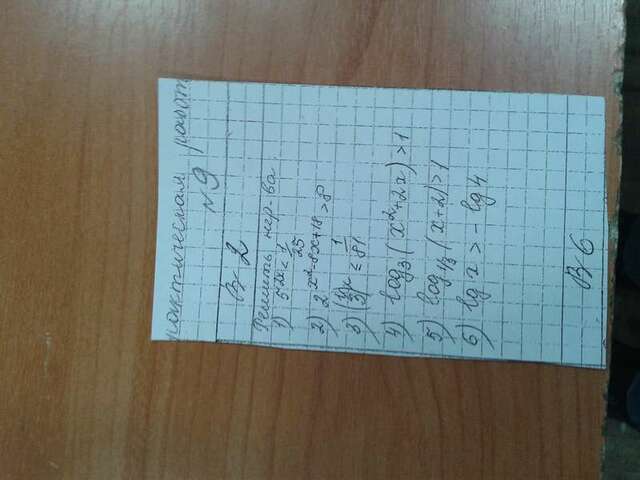 рактическая работ
№9
В-2
Решить нер-ва
1) 5^2x < 1/25
2) 2^x²-8x+18 > 8
3) (1/3)^x ≤ 1/81
4) log₃(x²+2x) > 1
5) log₁/₃(x+2) > 1
6) lg x > - lg 4
В 6